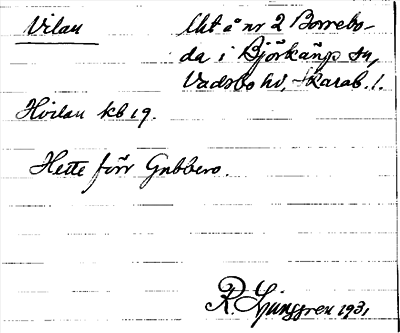 Vilan
Lht å nr 2 Borrebo-
da i Björkäng sn,
Vadsbo hd, Skarab. l.
Hvilan kb 19.
Hette förr Gubbero.
R. Ljunggren 1931